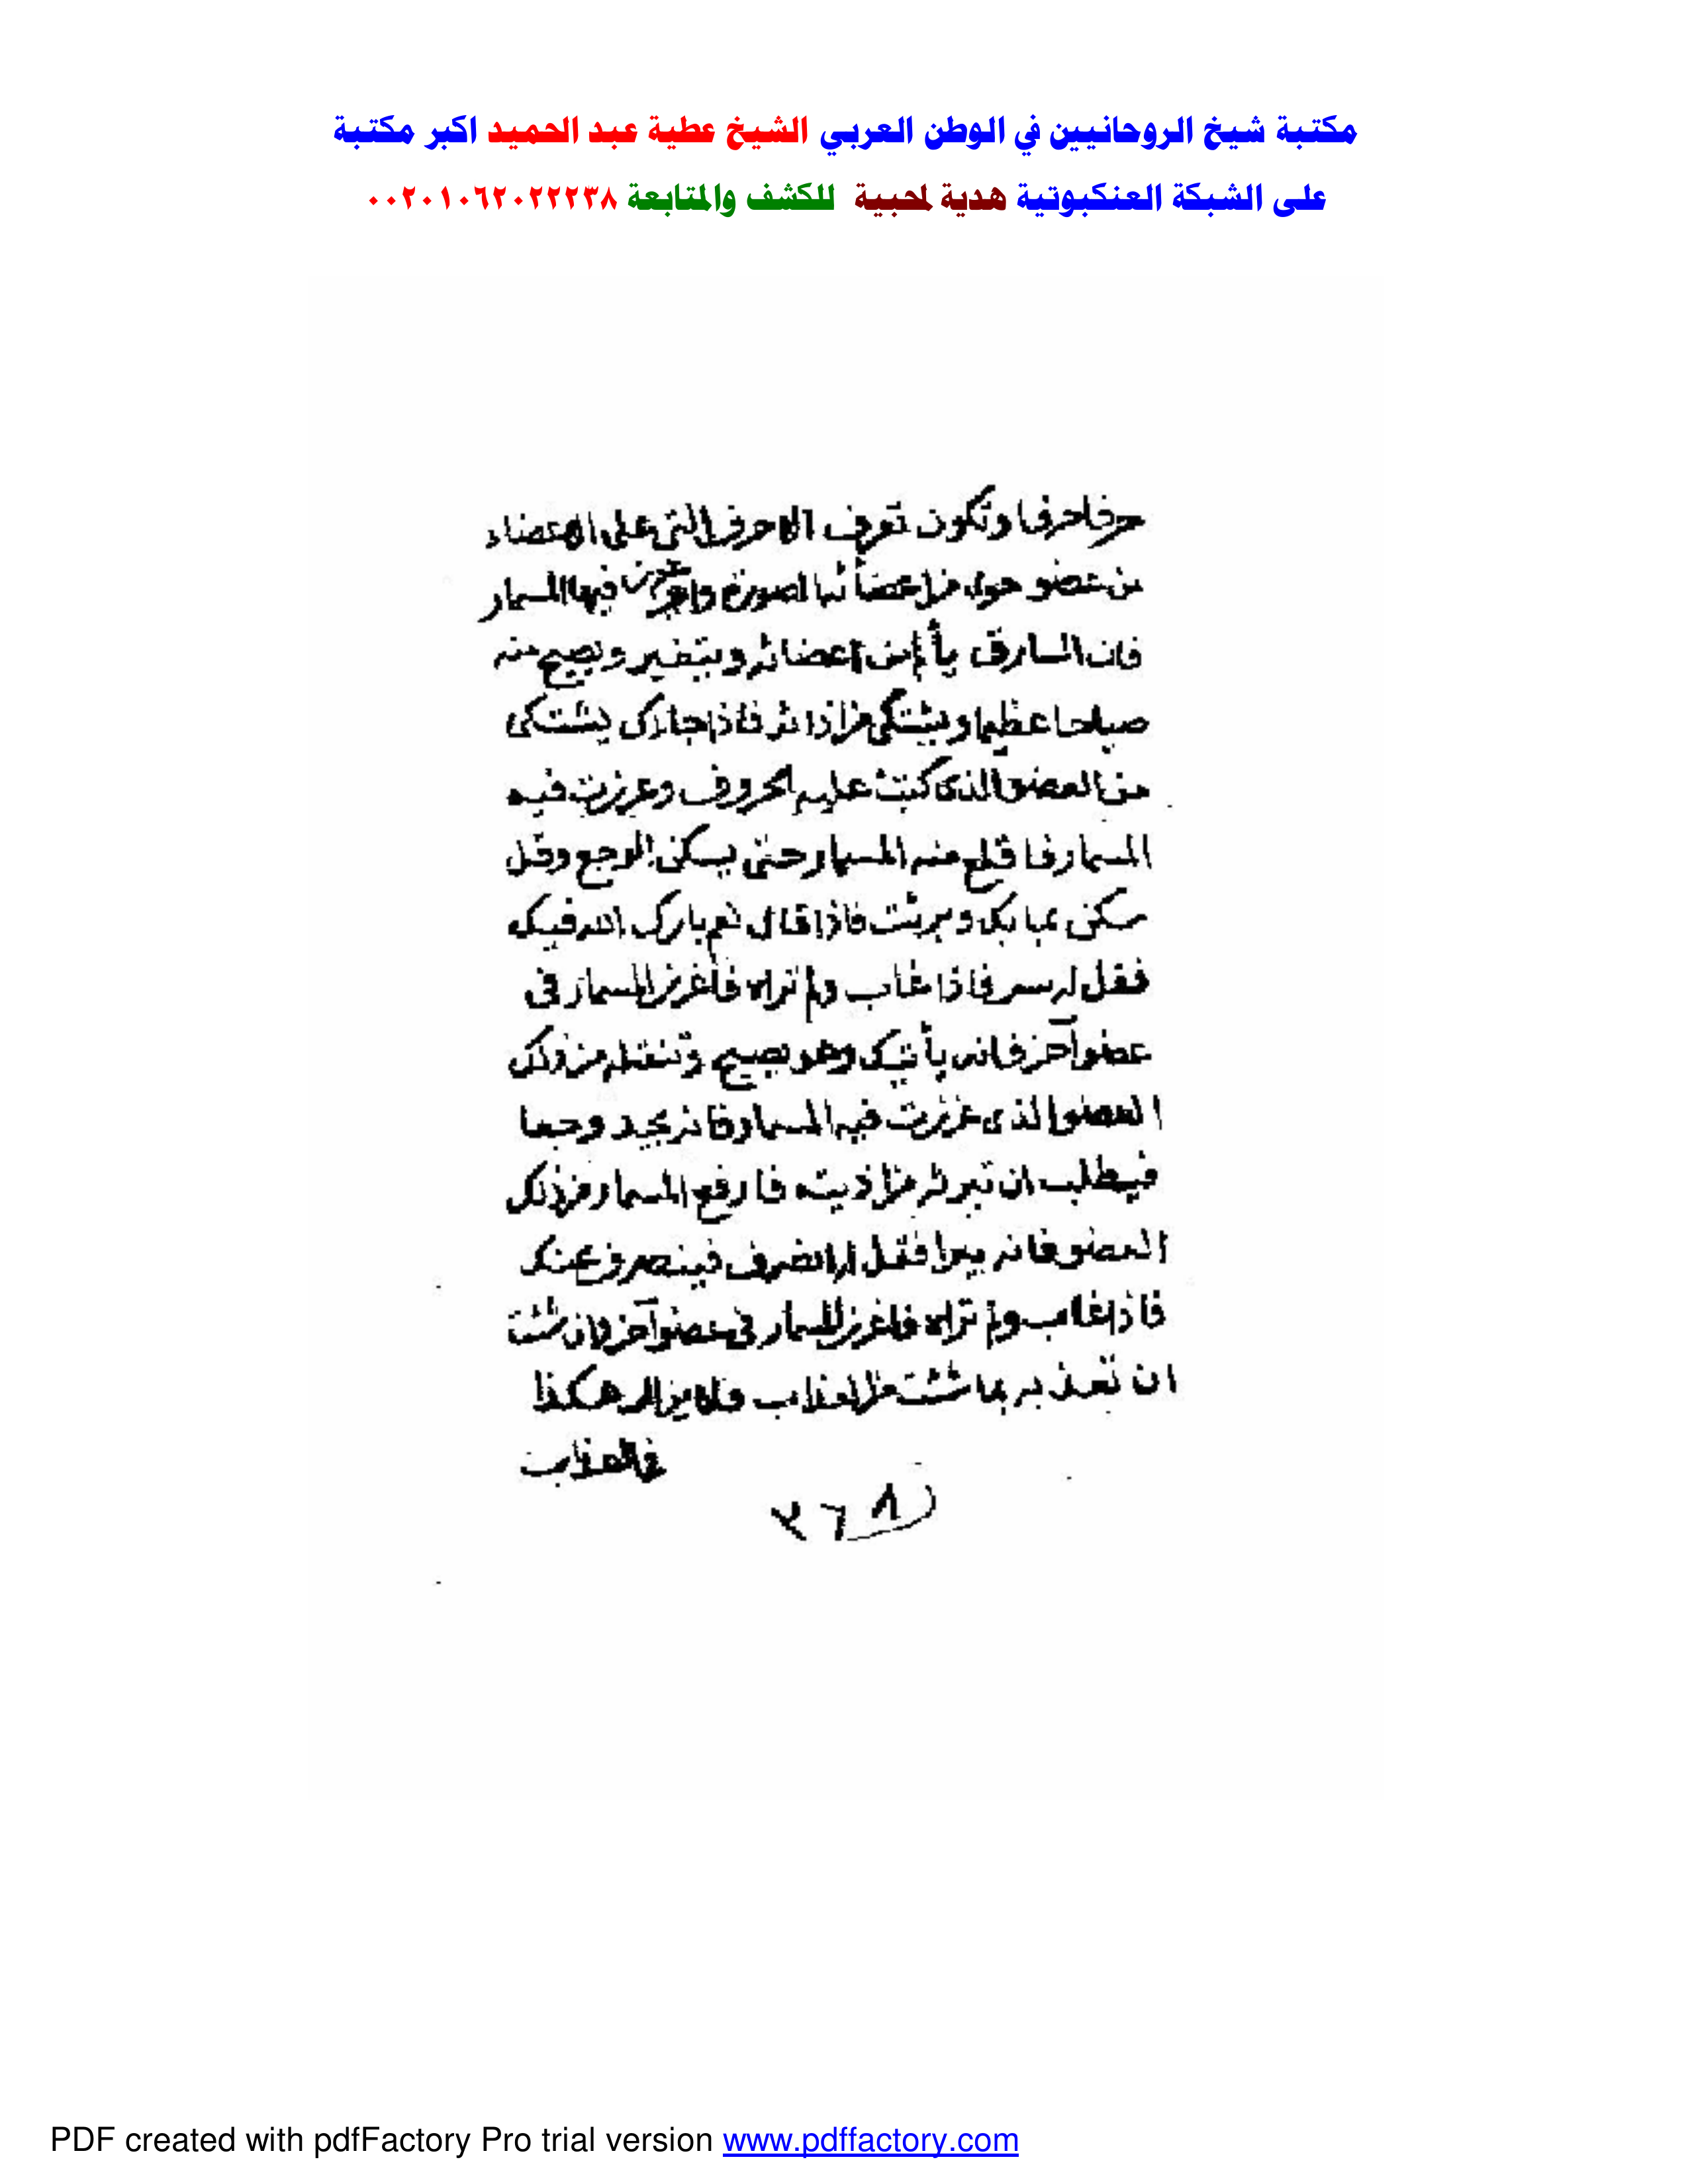 مكتبة شيخ الروحانيين في الوطن العربي الشيخ عطية عبد الحميد اكبر مكتبة
على الشبكة العنكبوتية هدية لمحبية للكشف والمتابعة ٠٠٢٠١٠٦٢٠٢٢٢٣٨
حرفا حرفا وتكون تعرف الاحرف التي على الاعضاء
من عضو من اعضائها الصورة فيها المسمار
فان السارق اعضائه ويتغير ويصيح منه
صياحا عظيما ويشتكي فاذا جاءك يشتكى
من العضو الذى كتبت عليه الحروف وغرزت فيه
المسمار فاقلع منه المسمار حتى يسكن الوجع وقل
سكن مابك وبرئت فاذا قال نعم بارك الله فيك
فقل له سر فاذا غاب ولم تراه فاغرز المسمار فى
عضو آخر فانه يأتيك وهو يصيح من ذلك
العضو الذى غرزت فيه المسمار فانه يجد وجعا
فيطلب ان من اذيته فارفع المسمار من ذلك
العضو فانه يبرا فقل له انصرف فينصرف عنك
فاذا غاب ولم تراه فاغرز المسمار فى عضو آخر وان شئت
ان تعذبه بما شئت من العذاب فلا يزال هكذا
فى العذاب
٣٦٨
PDF created with pdfFactory Pro trial version www.pdffactory.com